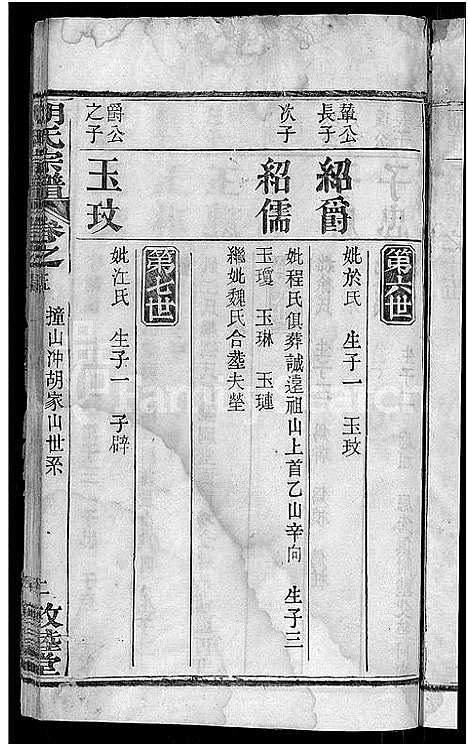 第六世
鞏公長子
紹爵
妣於氏　生子一　玉玟
次子
紹儒
妣程氏俱葬誠遠祖山上首乙山辛向　生子三
玉瓊　玉琳　玉璉
繼妣魏氏合塟夫塋
第七世
爵公之子
玉玟
妣江氏　生子一　子辟
胡氏宗譜
卷之
撞山冲胡家山世系
敦睦堂